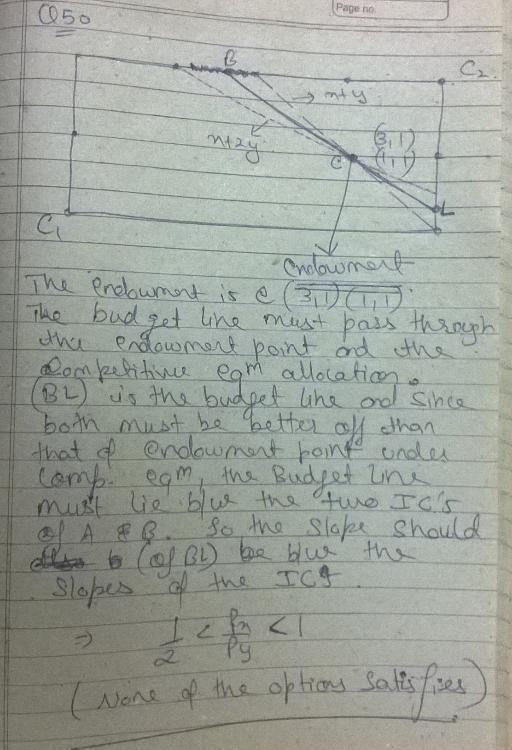 Page no.
Q50
B
C2
x+y
x+2y
(3,1)
(1,1)
C
L
C1
endowment
The endowment is e (3,1) (1,1).
The budget line must pass through
the endowment point and the
Competitive eqm allocation.
(BL) is the budget line and since
both must be better off than
that of endowment point under
Comp. eqm, the Budget line
must lie b/w the two IC's
of A & B. So the slope should
(of BL) be b/w the
slopes of the ICs.
⇒ 1/2 < Px/Py < 1
(None of the options satisfies)